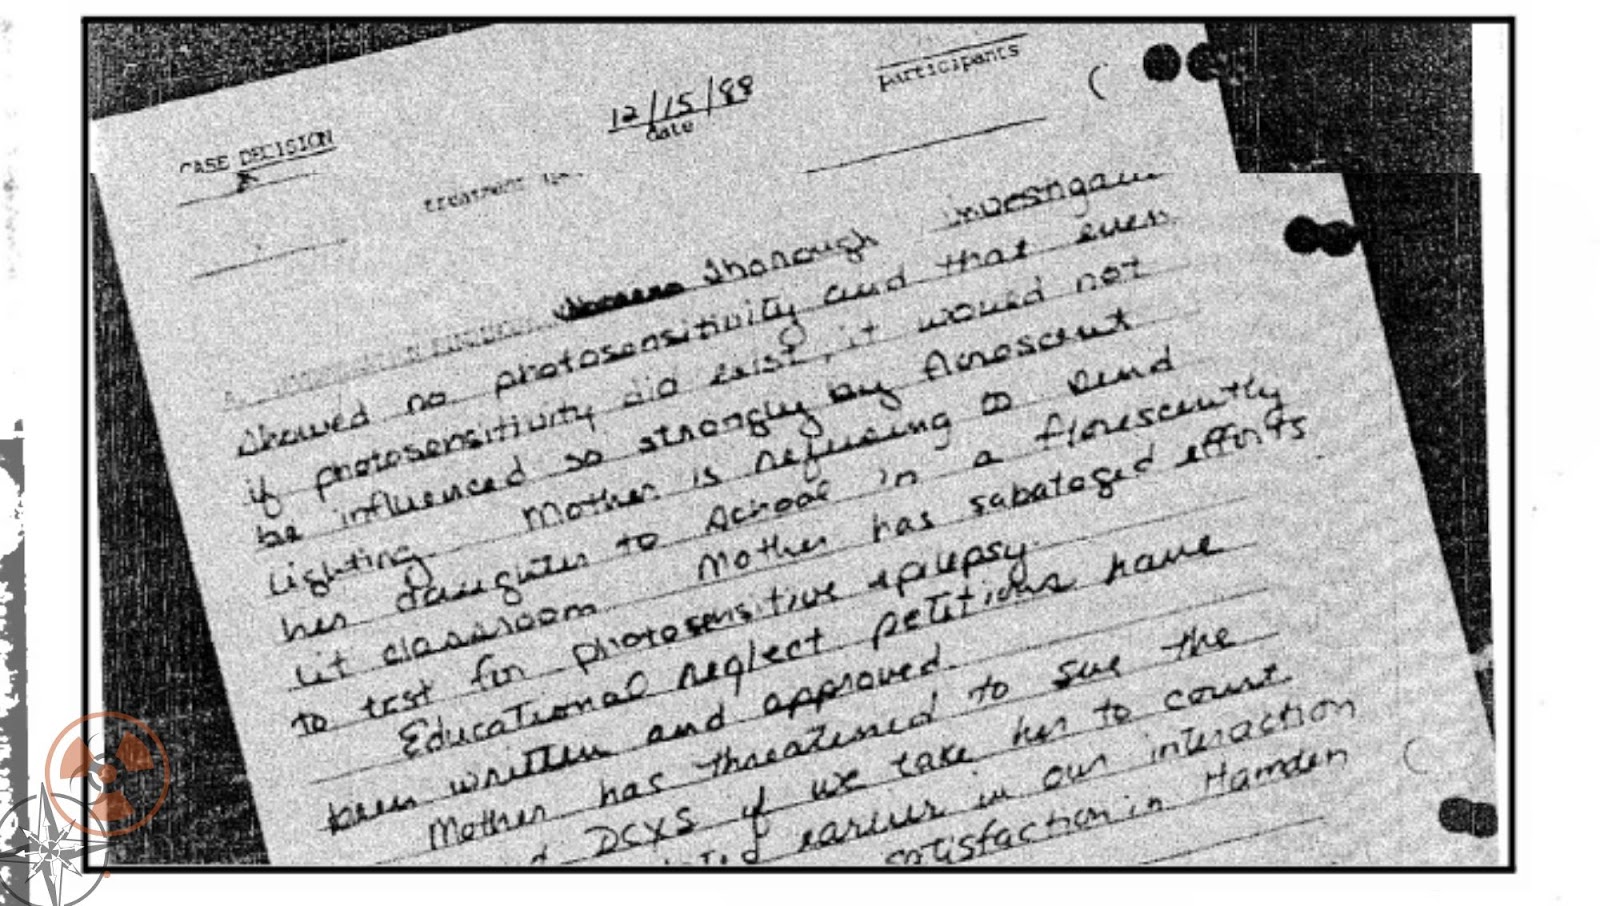 participants
12/15/88
date
CASE DECISION
treatment
Thorough
showed no photosensitivity and that even
if photosensitivity did exist, it would not
be influenced so strongly by florescent
lighting. Mother is refusing to send
her daughter to school in a florescently
lit classroom. Mother has sabatoged efforts
to test for photosensitive epilepsy.
Educational neglect petitions have
been written and approved.
Mother has threatened to sue the
DCYS if we take her to court.
earlier in our interaction
satisfaction in Hamden